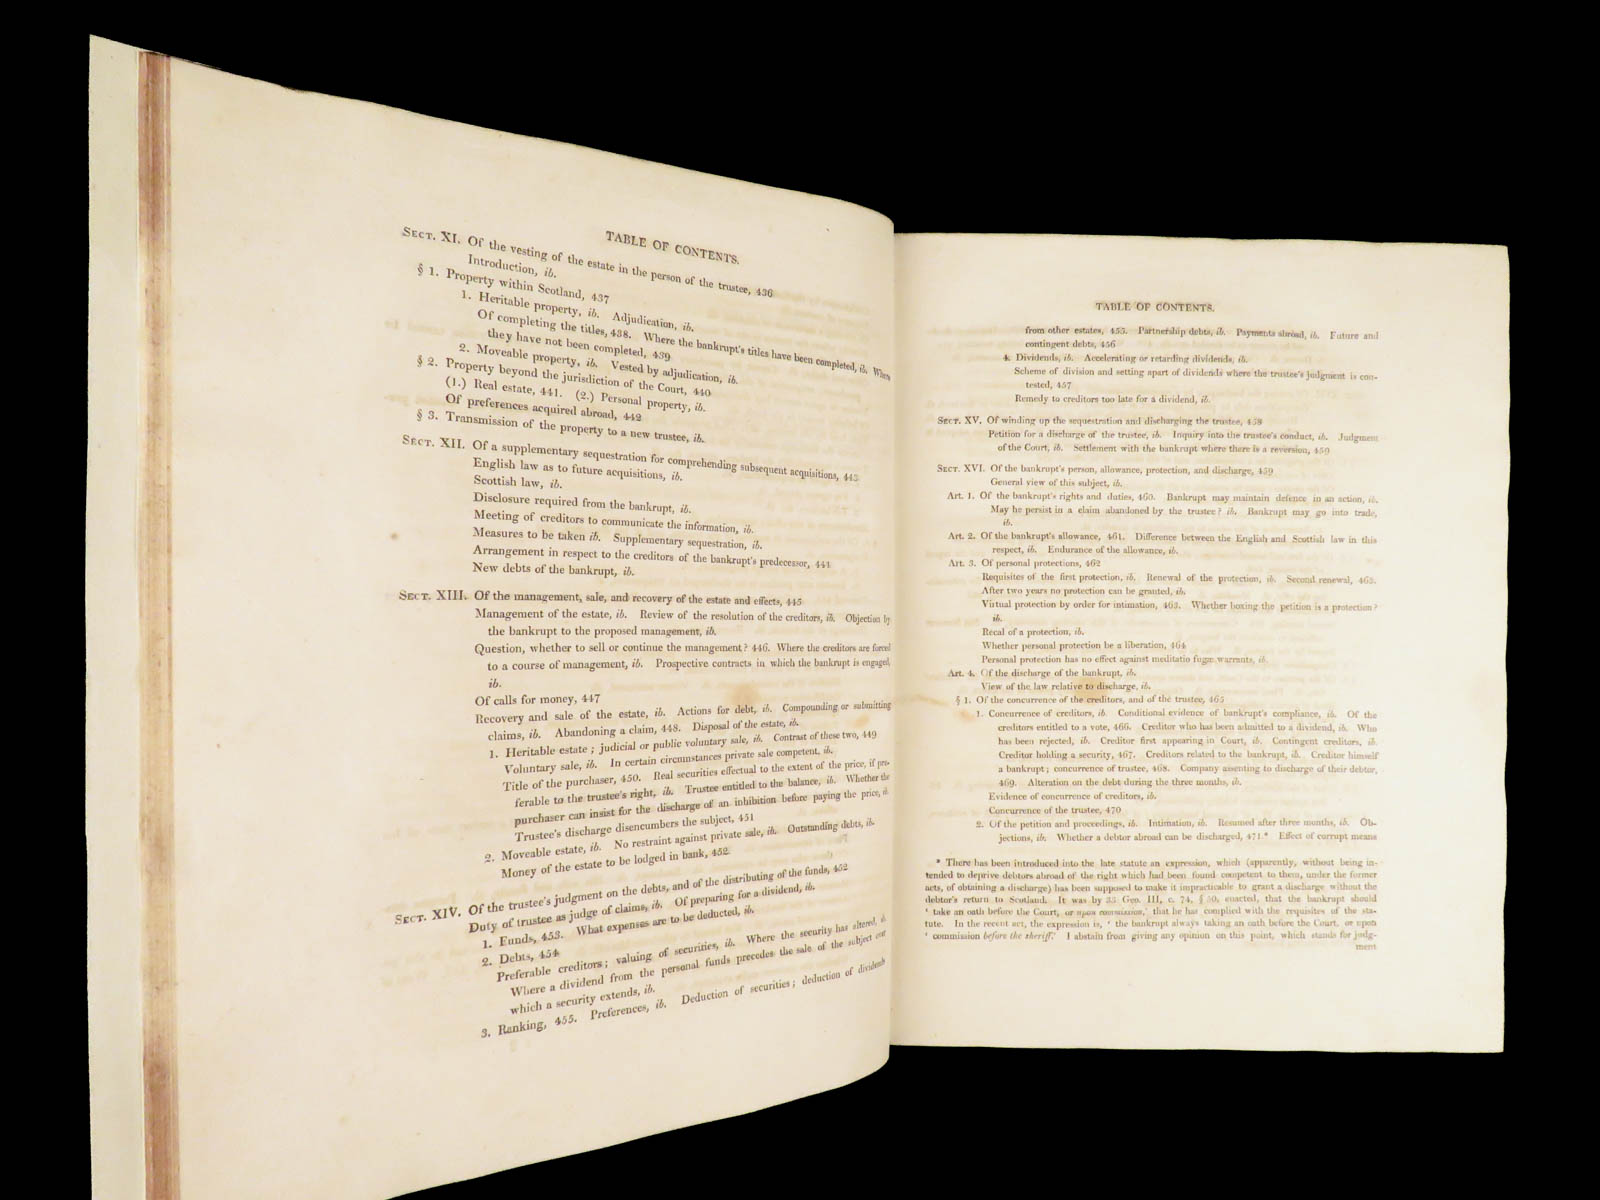 TABLE OF CONTENTS.
SECT. XI. Of the vesting of the estate in the person of the trustee, 436
Introduction, ib.
§ 1. Property within Scotland, 437
1. Heritable property, ib. Adjudication, ib.
Of completing the titles, 438. Where the bankrupt's titles have been completed, ib. Where
they have not been completed, 439
2. Moveable property, ib. Vested by adjudication, ib.
§ 2. Property beyond the jurisdiction of the Court, 440
(1.) Real estate, 441. (2.) Personal property, ib.
Of preferences acquired abroad, 442
§ 3. Transmission of the property to a new trustee, ib.
SECT. XII. Of a supplementary sequestration for comprehending subsequent acquisitions, 443
English law as to future acquisitions, ib.
Scottish law, ib.
Disclosure required from the bankrupt, ib.
Meeting of creditors to communicate the information, ib.
Measures to be taken ib. Supplementary sequestration, ib.
Arrangement in respect to the creditors of the bankrupt's predecessor, 444
New debts of the bankrupt, ib.
SECT. XIII. Of the management, sale, and recovery of the estate and effects, 445
Management of the estate, ib. Review of the resolution of the creditors, ib. Objection by
the bankrupt to the proposed management, ib.
Question, whether to sell or continue the management? 446. Where the creditors are forced
to a course of management, ib. Prospective contracts in which the bankrupt is engaged,
ib.
Of calls for money, 447
Recovery and sale of the estate, ib. Actions for debt, ib. Compounding or submitting
claims, ib. Abandoning a claim, 448. Disposal of the estate, ib.
1. Heritable estate; judicial or public voluntary sale, ib. Contrast of these two, 449
Voluntary sale, ib. In certain circumstances private sale competent, ib.
Title of the purchaser, 450. Real securities effectual to the extent of the price, if pre-
ferable to the trustee's right, ib. Trustee entitled to the balance, ib. Whether the
purchaser can insist for the discharge of an inhibition before paying the price, ib.
Trustee's discharge disencumbers the subject, 451
2. Moveable estate, ib. No restraint against private sale, ib. Outstanding debts, ib.
Money of the estate to be lodged in bank, 452
SECT. XIV. Of the trustee's judgment on the debts, and of the distributing of the funds, 452
Duty of trustee as judge of claims, ib. Of preparing for a dividend, ib.
1. Funds, 453. What expenses are to be deducted, ib.
2. Debts, 454
Preferable creditors; valuing of securities, ib. Where the security has altered, ib.
Where a dividend from the personal funds precedes the sale of the subject over
which a security extends, ib.
3. Ranking, 455. Preferences, ib. Deduction of securities; deduction of dividends
TABLE OF CONTENTS.
from other estates, 455. Partnership debts, ib. Payments abroad, ib. Future and
contingent debts, 456
4. Dividends, ib. Accelerating or retarding dividends, ib.
Scheme of division and setting apart of dividends where the trustee's judgment is con-
tested, 457
Remedy to creditors too late for a dividend, ib.
SECT. XV. Of winding up the sequestration and discharging the trustee, 458
Petition for a discharge of the trustee, ib. Inquiry into the trustee's conduct, ib. Judgment
of the Court, ib. Settlement with the bankrupt where there is a reversion, 459
SECT. XVI. Of the bankrupt's person, allowance, protection, and discharge, 459
General view of this subject, ib.
Art. 1. Of the bankrupt's rights and duties, 460. Bankrupt may maintain defence in an action, ib.
May he persist in a claim abandoned by the trustee? ib. Bankrupt may go into trade,
ib.
Art. 2. Of the bankrupt's allowance, 461. Difference between the English and Scottish law in this
respect, ib. Endurance of the allowance, ib.
Art. 3. Of personal protections, 462
Requisites of the first protection, ib. Renewal of the protection, ib. Second renewal, 463.
After two years no protection can be granted, ib.
Virtual protection by order for intimation, 463. Whether boxing the petition is a protection?
ib.
Recal of a protection, ib.
Whether personal protection be a liberation, 464
Personal protection has no effect against meditatio fugæ warrants, ib.
Art. 4. Of the discharge of the bankrupt, ib.
View of the law relative to discharge, ib.
§ 1. Of the concurrence of the creditors, and of the trustee, 465
1. Concurrence of creditors, ib. Conditional evidence of bankrupt's compliance, ib. Of the
creditors entitled to a vote, 466. Creditor who has been admitted to a dividend, ib. Who
has been rejected, ib. Creditor first appearing in Court, ib. Contingent creditors, ib.
Creditor holding a security, 467. Creditors related to the bankrupt, ib. Creditor himself
a bankrupt; concurrence of trustee, 468. Company assenting to discharge of their debtor,
469. Alteration on the debt during the three months, ib.
Evidence of concurrence of creditors, ib.
Concurrence of the trustee, 470
2. Of the petition and proceedings, ib. Intimation, ib. Resumed after three months, ib. Ob-
jections, ib. Whether a debtor abroad can be discharged, 471.* Effect of corrupt means
* There has been introduced into the late statute an expression, which (apparently, without being in-
tended to deprive debtors abroad of the right which had been found competent to them, under the former
acts, of obtaining a discharge) has been supposed to make it impracticable to grant a discharge without the
debtor's return to Scotland. It was by 33 Geo. III, c. 74, § 50, enacted, that the bankrupt should
' take an oath before the Court, or upon commission,' that he has complied with the requisites of the sta-
tute. In the recent act, the expression is, ' the bankrupt always taking an oath before the Court, or upon
' commission before the sheriff.' I abstain from giving any opinion on this point, which stands for judg-
ment